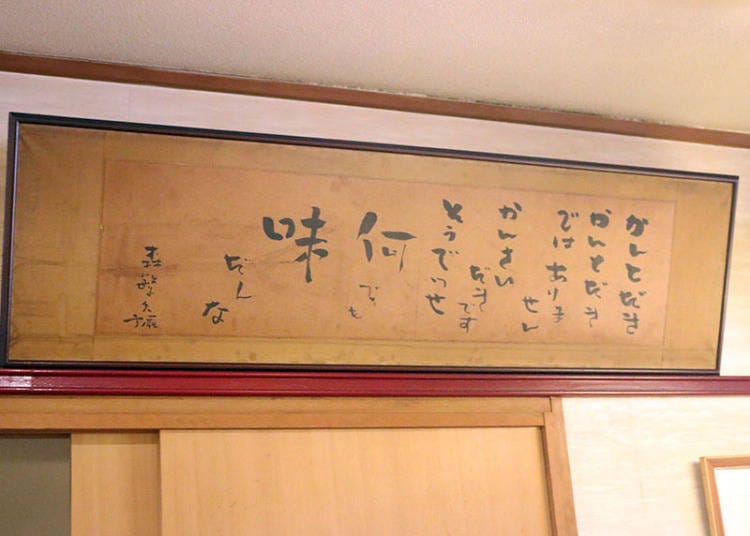 かんとだき
かんとだき
ではありま
せん
かんさい
だきです
そうでっせ
何でも
味
どんな
森繁久彌